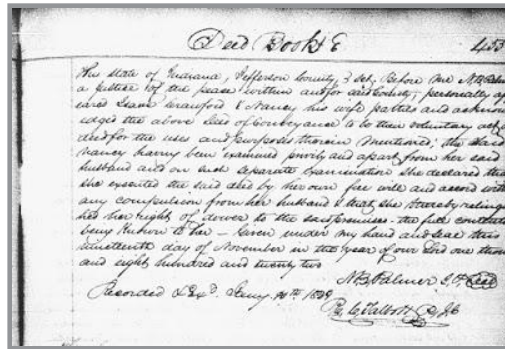 Deed Book E 455
The State of Indiana, Jefferson County, Sct. Before me N.B. Palmer
a justice of the peace within and for said County, personally ap
eared Isaac Crawford & Nancy his wife parties and acknow
ledged the above Deed of Conveyance to be their voluntary act &
deed for the uses and purposes therein mentioned, the said
Nancy having been examined privily and apart from her said
husband and on such separate examination she declared that
she executed the said deed by her own free will and accord with
any compulsion from her husband & that she thereby relinq
hed her right of dower to the said premises - the full contents
being known to her - Given under my hand and seal this
nineteenth day of November in the year of our Lord one thou
and eight hundred and twenty two
N.B. Palmer J.P. Seal
Recorded 1829